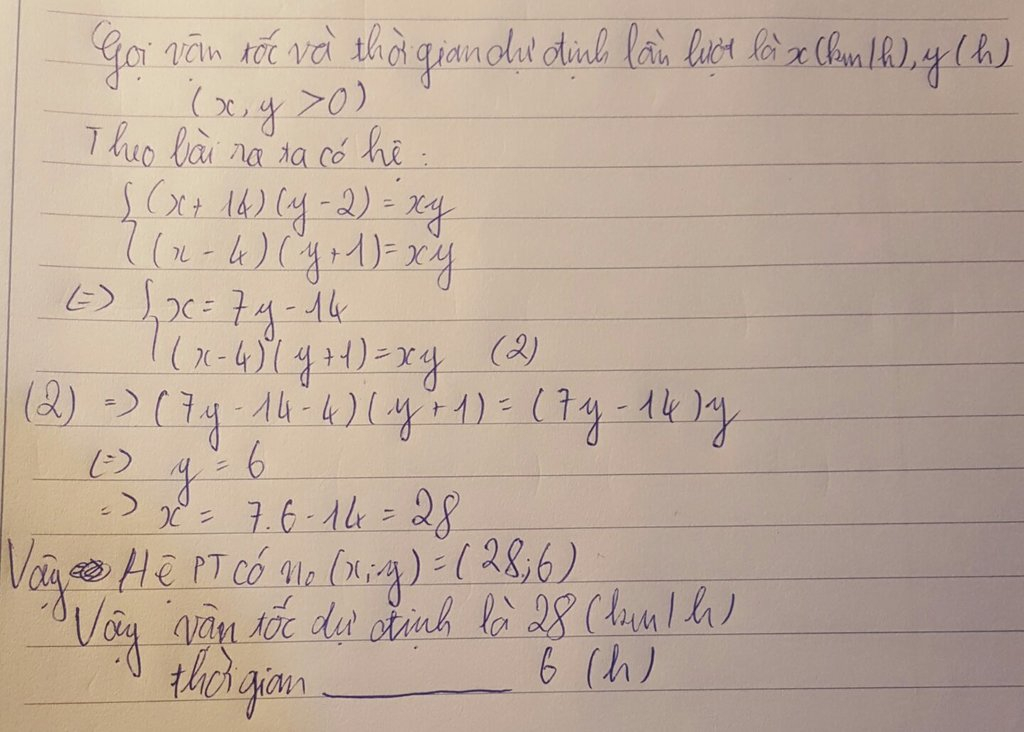 Gọi vận tốc và thời gian dự định lần lượt là x(km/h), y(h)
(x, y >0)
Theo bài ra ta có hệ:
{(x+ 14)(y-2)=xy
(x-4)(y+1)=xy
(=> {x= 7y-14
(x-4)(y+1)=xy (2)
(2) => (7y-14-4)(y+1)=(7y-14)y
(=> y=6
=> x= 7.6-14=28
Vậy Hệ PT có n₀ (x;y)=(28;6)
Vậy vận tốc dự định là 28(km/h)
thời gian ______ 6 (h)